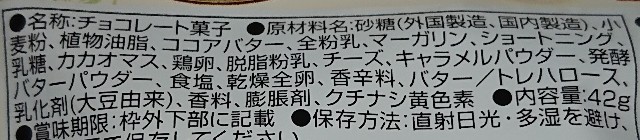 ●名称:チョコレート菓子 ●原材料名:砂糖(外国製造、国内製造)、小
麦粉、植物油脂、ココアバター、全粉乳、マーガリン、ショートニング、
乳糖、カカオマス、鶏卵、脱脂粉乳、チーズ、キャラメルパウダー、発酵
バターパウダー、食塩、乾燥全卵、香辛料、バター/トレハロース、
乳化剤(大豆由来)、香料、膨脹剤、クチナシ黄色素 ●内容量:42g
●賞味期限:枠外下部に記載 ●保存方法:直射日光・多湿を避け、
て保存してください